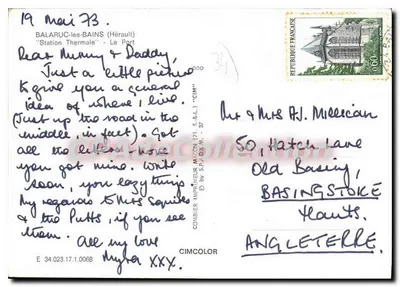 19 Mai 73.
BALARUC-les-BAINS (Hérault)
"Station Thermale" - Le Port
Dear Mummy & Daddy,
Just a little picture
to give you a general
idea of where I live.
(Just up the road in the
middle, in fact). Got
all the letters - hope
you got mine. Write
soon, you lazy things
My regards to Mrs Squires
& the Putts, if you see
them.
All my love
Myra XXX.
E 34.023.17.1.0068
CIMCOLOR
REPUBLIQUE FRANCAISE
0,60
Mr & Mrs A.J. Millican
50, Hatch Lane
Old Basing,
BASINGSTOKE
Hants.
ANGLETERRE.